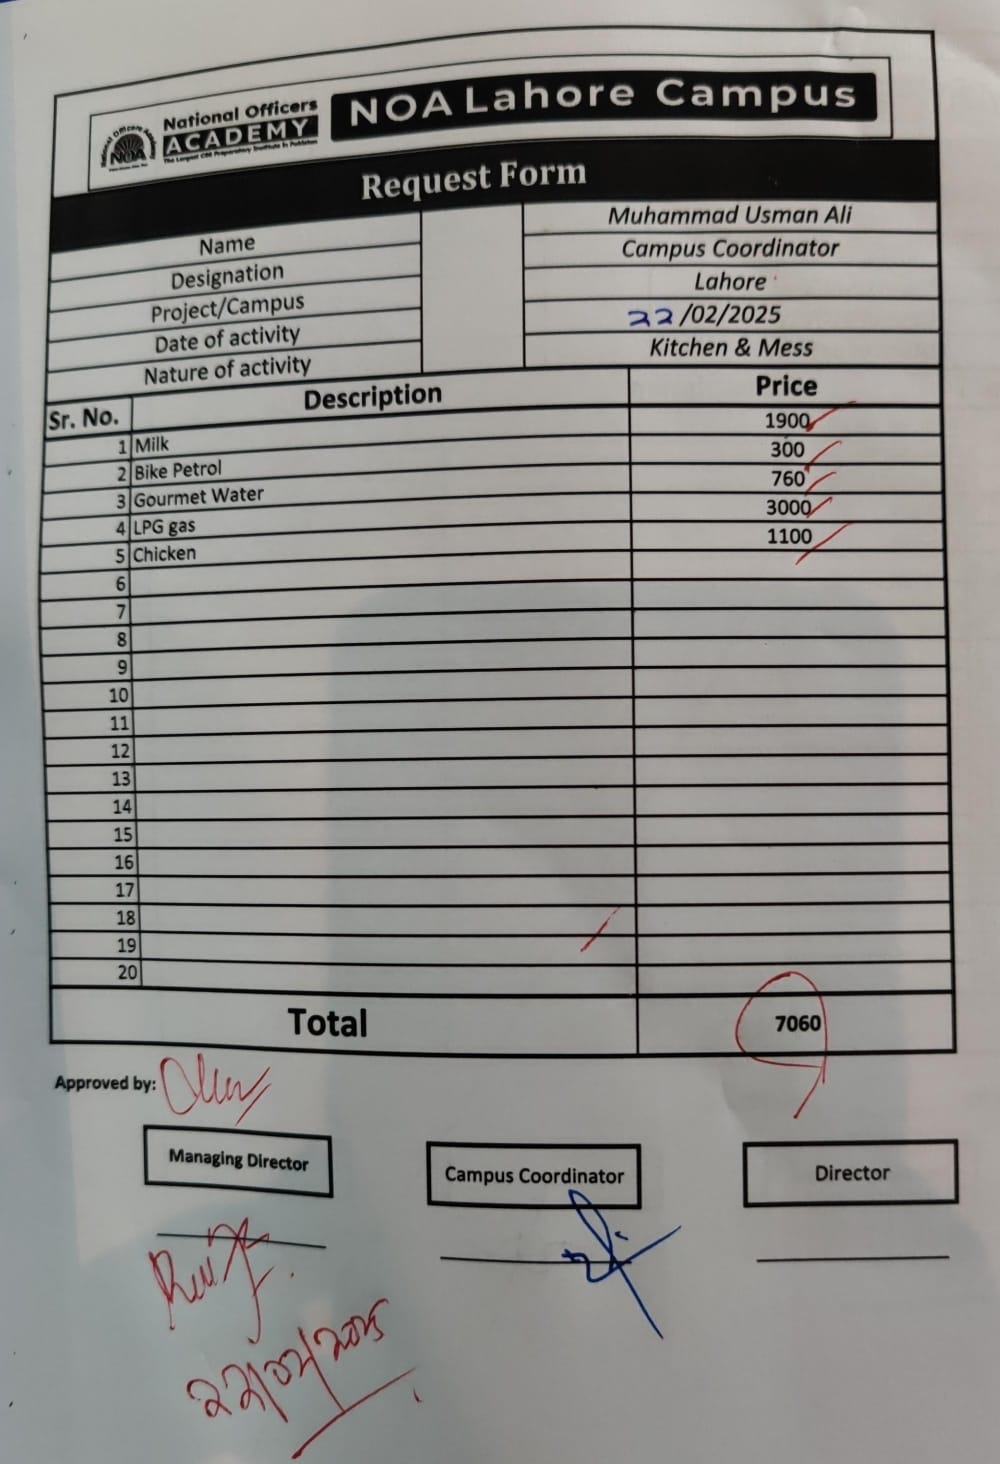 National Officers
ACADEMY
The Largest CSS Preparatory Institute in Pakistan
NOA
NOA Lahore Campus
Request Form
Name Muhammad Usman Ali
Designation Campus Coordinator
Project/Campus Lahore
Date of activity 22/02/2025
Nature of activity Kitchen & Mess
Sr. No. Description Price
1 Milk 1900
2 Bike Petrol 300
3 Gourmet Water 760
4 LPG gas 3000
5 Chicken 1100
6
7
8
9
10
11
12
13
14
15
16
17
18
19
20
Total 7060
Approved by:
Managing Director Campus Coordinator Director
22/02/2025